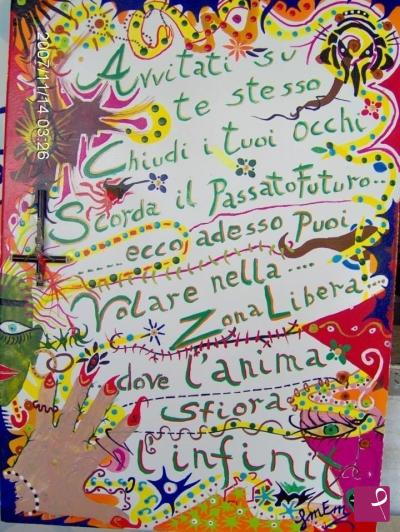 Avvitati su
te stesso
Chiudi i tuoi occhi
Scorda il Passato Futuro...
...ecco, adesso Puoi
Volare nella ....
Zona Libera...
dove l'anima
sfiora
l'infinit
2007/11/14 03:26